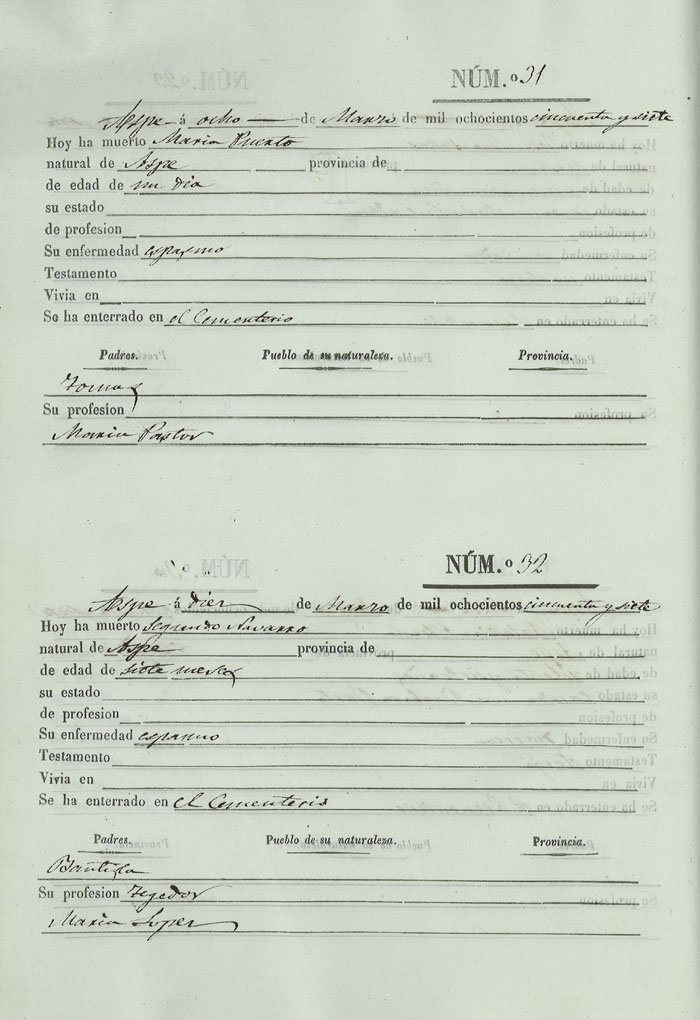 NÚM.º 31
Aspe á ocho de Marzo de mil ochocientos cincuenta y siete
Hoy ha muerto Maria Puerto
natural de Aspe provincia de
de edad de un dia
su estado
de profesion
Su enfermedad espasmo
Testamento
Vivia en
Se ha enterrado en el Cementerio
Padres. Pueblo de su naturaleza. Provincia.
Tomas
Su profesion
Maria Pastor
NÚM.º 32
Aspe á diez de Marzo de mil ochocientos cincuenta y siete
Hoy ha muerto Segundo Navarro
natural de Aspe provincia de
de edad de siete meses
su estado
de profesion
Su enfermedad espasmo
Testamento
Vivia en
Se ha enterrado en el Cementerio
Padres. Pueblo de su naturaleza. Provincia.
Bautista
Su profesion Tegedor
Maria Lopez